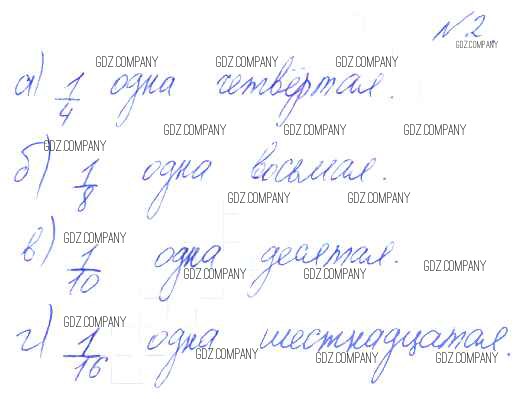 №2.
а) 1/4 одна четвёртая.
б) 1/8 одна восьмая.
в) 1/10 одна десятая.
г) 1/16 одна шестнадцатая.
GDZ.COMPANY
GDZ.COMPANY GDZ.COMPANY GDZ.COMPANY
GDZ.COMPANY GDZ.COMPANY GDZ.COMPANY
GDZ.COMPANY
GDZ.COMPANY GDZ.COMPANY
GDZ.COMPANY
GDZ.COMPANY GDZ.COMPANY GDZ.COMPANY
GDZ.COMPANY
GDZ.COMPANY GDZ.COMPANY GDZ.COMPANY